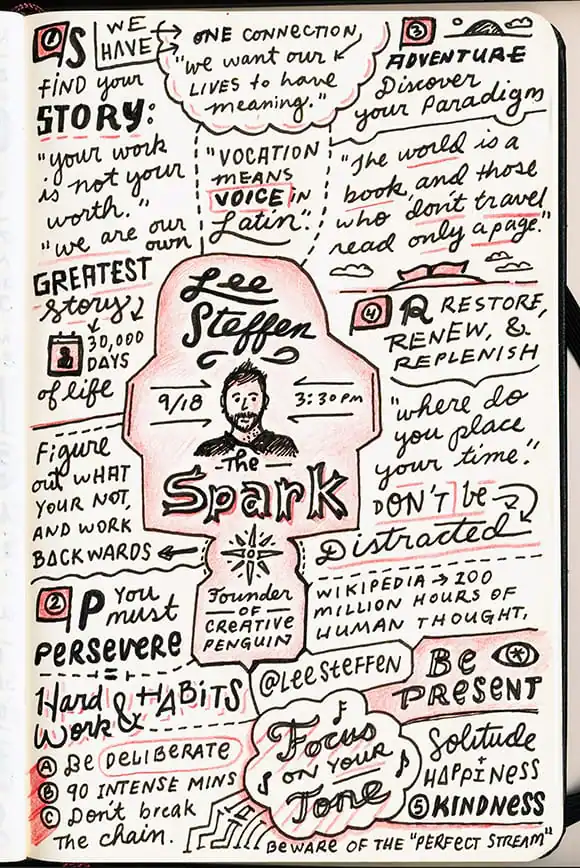 ① S
WE
HAVE
ONE CONNECTION,
"we want our
LIVES to have
meaning."
FIND your
STORY:
"your work
is not your
worth."
"we are our
own
GREATEST
story
30,000
DAYS
of life
Figure
out WHAT
YOUR NOT,
AND WORK
BACKWARDS
"VOCATION
MEANS
VOICE in
Latin".
Lee
Steffen
9/18
3:30pm
The
Spark
Founder
OF
CREATIVE
PENGUIN
② P YOU
must
PERSEVERE
=
Hard
Work & HABITS
Ⓐ Be DELIBERATE
Ⓑ 90 INTENSE MINS
Ⓒ Don't break
The chain.
③
ADVENTURE
Discover
your Paradigm
"The world is a
book, and those
who don't travel
read only a page."
④ R RESTORE,
RENEW, &
REPLENISH
"where do
you place
your time."
DON'T be
Distracted
WIKIPEDIA → 100
MILLION HOURS OF
HUMAN THOUGHT,
@LEESTEFFEN
BE
PRESENT
Focus
ON YOUR
Tone
Solitude
HAPPiNESS
⑤ KINDNESS
BEWARE OF THE "PERFECT STREAM"